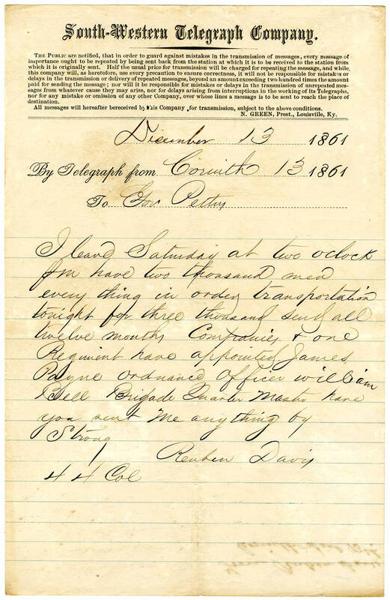 South-Western Telegraph Company.
THE PUBLIC are notified, that in order to guard against mistakes in the transmission of messages, every message of
importance ought to be repeated by being sent back from the station at which it is to be received to the station from
which it is originally sent. Half the usual price for transmission will be charged for repeating the message, and while,
this company will, as heretofore, use every precaution to ensure correctness, it will not be responsible for mistakes or
delays in the transmission or delivery of repeated messages, beyond an amount exceeding two hundred times the amount
paid for sending the message; nor will it be responsible for mistakes or delays in the transmission of unrepeated mes-
sages from whatever cause they may arise, nor for delays arising from interruptions in the working of its Telegraphs,
nor for any mistake or omission of any other Company, over whose lines a message is to be sent to reach the place of
destination.
All messages will hereafter be received by this Company for transmission, subject to the above conditions.
N. GREEN, Prest., Louisville, Ky.
December 13 1861
By Telegraph from Corinth 13 1861
To Gov Pettus
I leave Saturday at two oclock
pm have two thousand men
every thing in order transportation
tonight for three thousand send all
twelve months Companies & one
Regiment have appointed James
Payne Ordnance Officer william
Bell Brigade Quarter Master have
you sent me anything by
Strong
Reuben Davis
44 Col